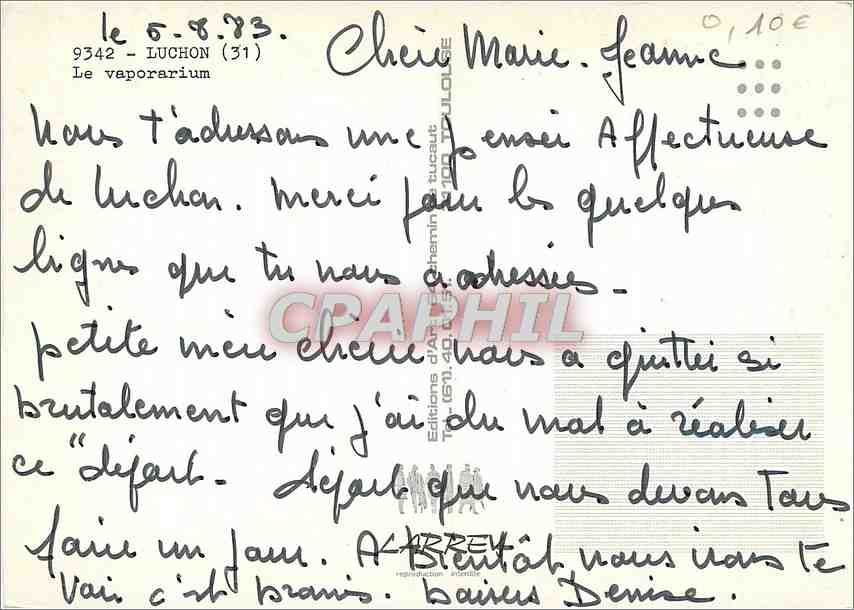 le 5.8.83.
0,10€
9342 - LUCHON (31)
Le vaporarium
Chère Marie-Jeanne
Nous t'adressons une pensée Affectueuse
de Luchon. Merci pour les quelques
lignes que tu nous a adressées -
petite mère chérie nous a quitté si
brutalement que j'ai du mal à réaliser
ce "départ - départ que nous devons Tous
faire un jour. A Bientôt, nous irons te
voir c'est promis. baisers Denise.
Editions d'Art chemin de tucaut
31100 TOULOUSE
LARREY
reproduction interdite
CPAPHIL